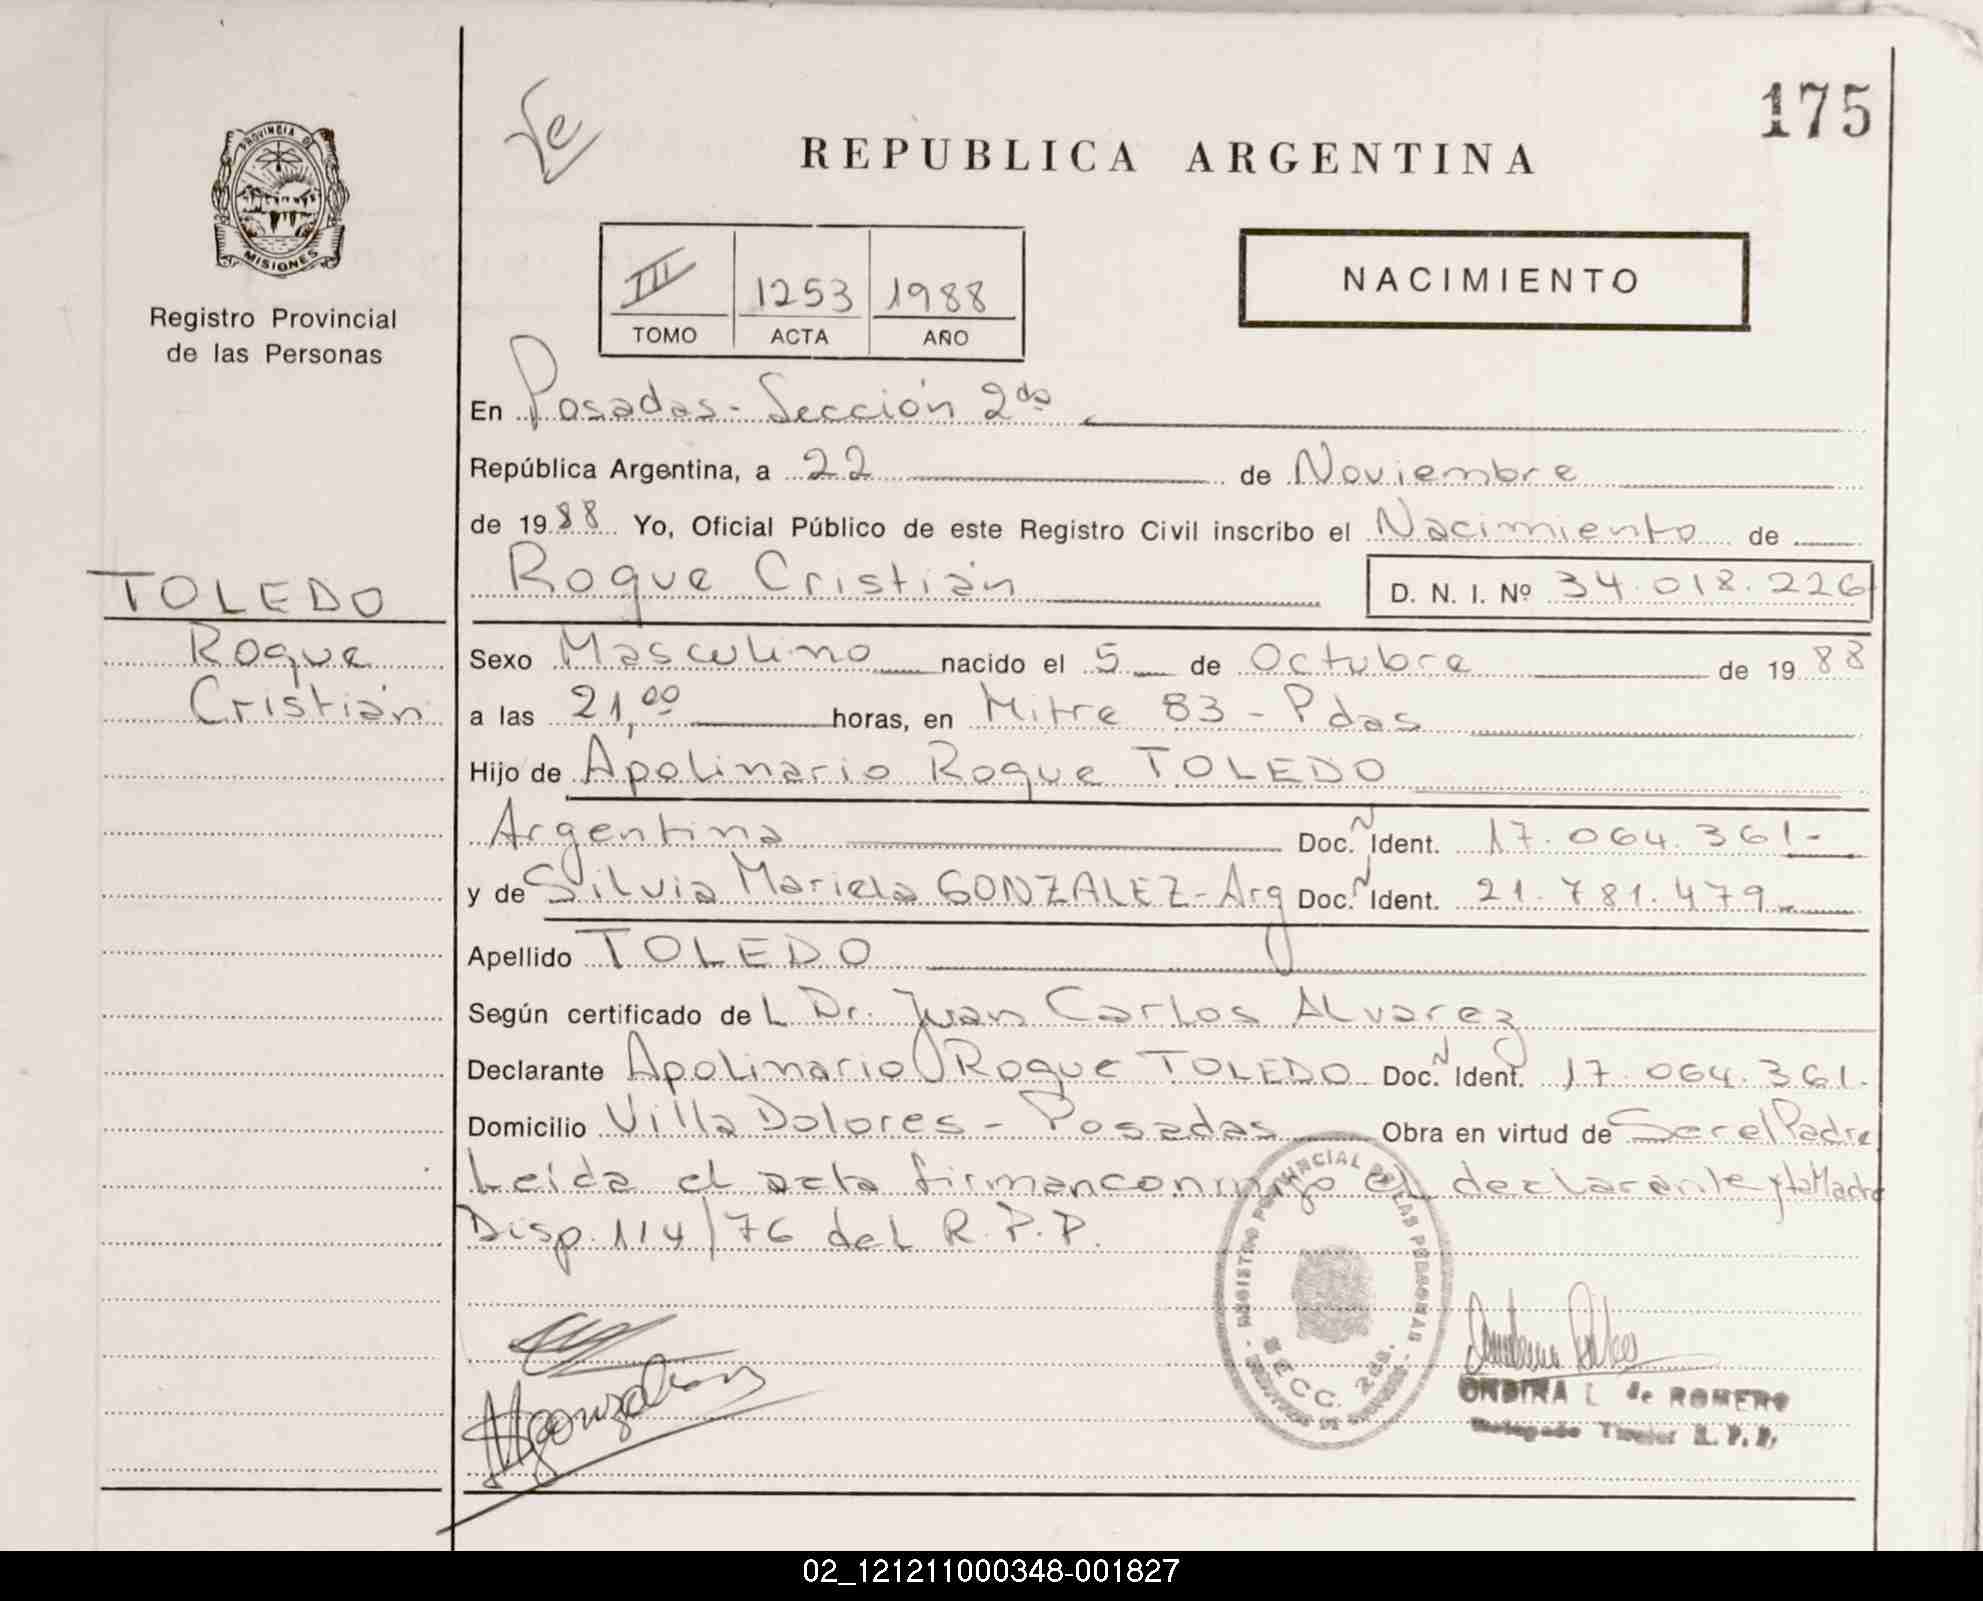 175
REPUBLICA ARGENTINA
PROVINCIA DE
MISIONES
Registro Provincial
de las Personas
III 1253 1988
TOMO ACTA AÑO
NACIMIENTO
En Posadas - Sección 2da
República Argentina, a 22 de Noviembre
de 1988 Yo, Oficial Público de este Registro Civil inscribo el Nacimiento de
TOLEDO
Roque Cristián
D. N. I. Nº 34.018.226
Roque
Cristián
Sexo Masculino nacido el 5 de Octubre de 1988
a las 21,00 horas, en Mitre 83 - Pdas
Hijo de Apolinario Roque TOLEDO
Argentina Doc. N Ident. 17.064.361-
y de Silvia Mariela GONZALEZ - Arg Doc. N Ident. 21.781.479-
Apellido TOLEDO
Según certificado de L Dr. Juan Carlos Alvarez
Declarante Apolinario Roque TOLEDO Doc. N Ident. 17.064.361.
Domicilio Villa Dolores - Posadas Obra en virtud de Ser el Padre
Leída el acta firman conmigo el declarante y la Madre
Disp. 114/76 del R.P.P.
REGISTRO PROVINCIAL DE LAS PERSONAS
SECC. 2da.
ONDINA L de ROMERO
Delegado Titular R. P. P.
02_121211000348-001827